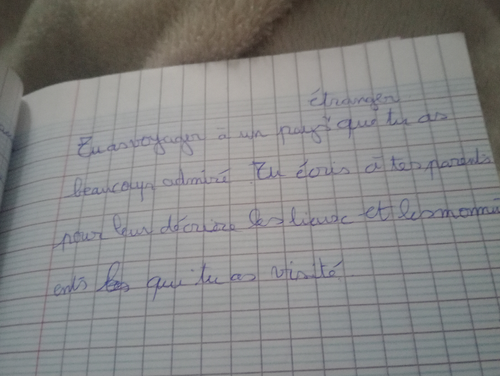 étranger
Tu as voyager a un pays que tu as
beaucoup admiré. Tu écris à tes parents
pour leur décrire les lieux et les monum
ents qui tu as visité.